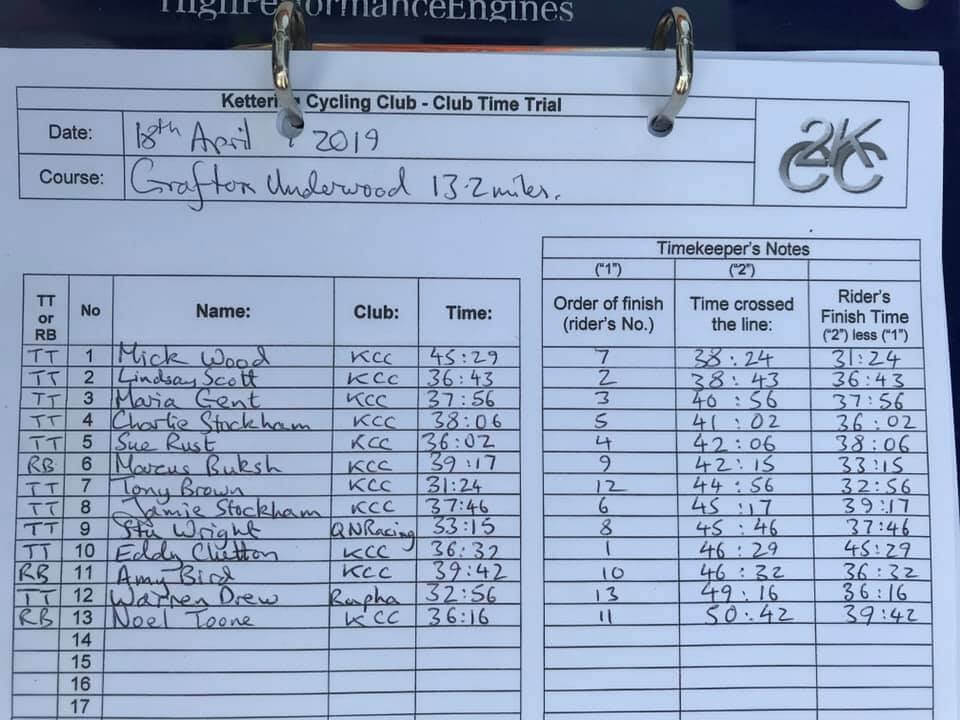 HighPerformanceEngines
Kettering Cycling Club - Club Time Trial
Date: 18th April, 2019
Course: Grafton Underwood 13.2 miles.
2KCCC
Timekeeper's Notes
("1") ("2")
TT or RB No Name: Club: Time: Order of finish (rider's No.) Time crossed the line: Rider's Finish Time ("2") less ("1")
TT 1 Mick Wood KCC 45:29 7 38:24 31:24
TT 2 Lindsay Scott KCC 36:43 2 38:43 36:43
TT 3 Maria Gent KCC 37:56 3 40:56 37:56
TT 4 Charlie Stockham KCC 38:06 5 41:02 36:02
TT 5 Sue Rust KCC 36:02 4 42:06 38:06
RB 6 Marcus Buksh KCC 39:17 9 42:15 33:15
TT 7 Tony Brown KCC 31:24 12 44:56 32:56
TT 8 Jamie Stockham KCC 37:46 6 45:17 39:17
TT 9 Stu Wright QNRacing 33:15 8 45:46 37:46
TT 10 Eddy Chetton KCC 36:32 1 46:29 45:29
RB 11 Amy Bird KCC 39:42 10 46:32 36:32
TT 12 Warren Drew Rapha 32:56 13 49:16 36:16
RB 13 Noel Toone KCC 36:16 11 50:42 39:42
14
15
16
17